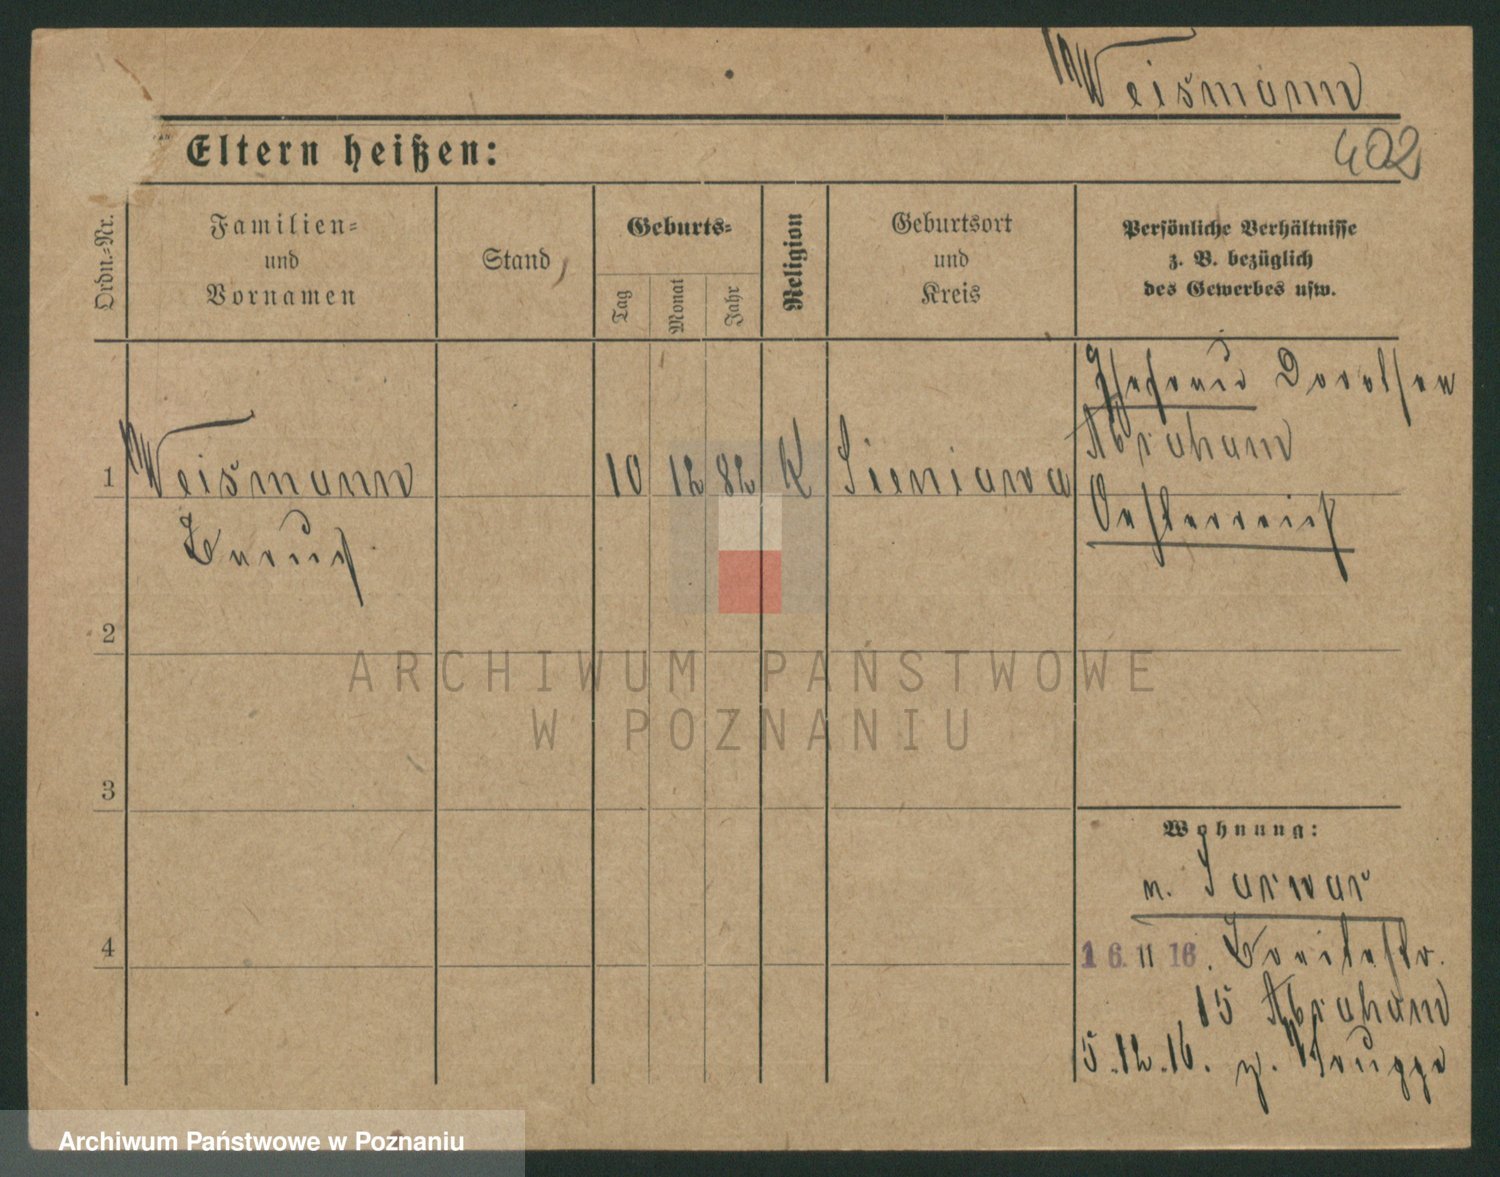 Weismann
402
Eltern heißen:
Ordn.-Nr.
Familien-
und
Vornamen
Stand
Geburts-
Tag
Monat
Jahr
Religion
Geburtsort
und
Kreis
Persönliche Verhältnisse
z. B. bezüglich
des Gewerbes usw.
1
Weismann
10 12 82
K
Sieniawa
Abraham
Oesterreich
Baruch
2
3
4
ARCHIWUM PAŃSTWOWE
W POZNANIU
Wohnung:
n. Sarwar
16. 11 16. Breitestr.
15 Abraham
5.12.16. z. Truppe
Archiwum Państwowe w Poznaniu